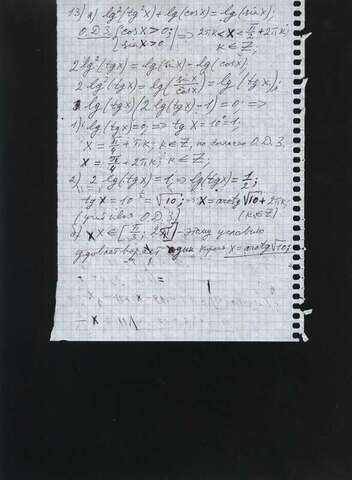 13) а) lg²(tg²x) + lg(cosx) = lg(sinx);
О.Д.З. { cosx > 0; sinx > 0 } ⇒ 2πk < x < π/2 + 2πk; k∈Z,
2lg²(tgx) = lg(sinx) - lg(cosx);
2lg²(tgx) = lg(sinx/cosx) = lg(tgx);
lg(tgx)(2lg(tgx) - 1) = 0 ⇒
1) lg(tgx) = 0; ⇒ tgx = 10⁰ = 1;
x = π/4 + πk; k∈Z, но согласно О.Д.З.
x = π/4 + 2πk; k∈Z,
2) 2lg(tgx) = 1; ⇒ lg(tgx) = 1/2;
tgx = 10 = √10; ⇒ x = arctg√10 + 2πk;
(учитывая О.Д.З.) (k∈Z)
б) x∈[π/3; 2π] - этому условию
удовлетворяет один корень x = arctg√10;